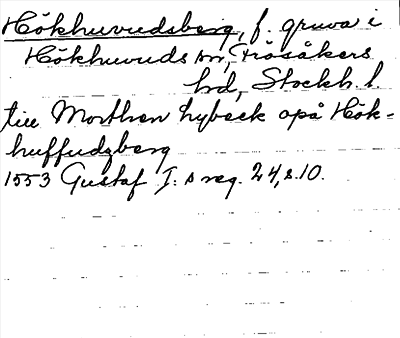 Hökhuvudsberg, f. gruva i
Hökhuvuds sn, Frösåkers
hd, Stockh. l.
till Morthen Lybeck opå Hök-
huffudzberg
1553 Gustaf I:s reg. 24, s. 10.